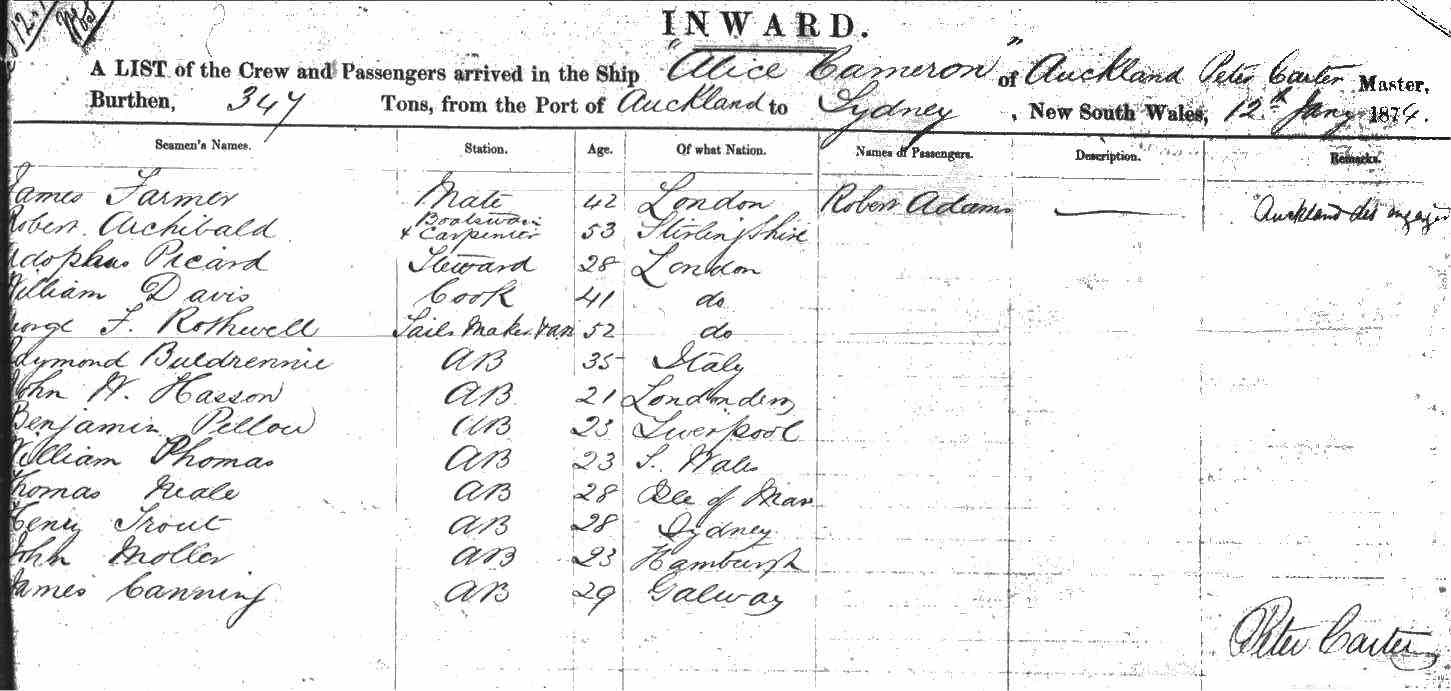 INWARD.
A LIST of the Crew and Passengers arrived in the Ship "Alice Cameron" of Auckland Peter Carter Master,
Burthen, 347 Tons, from the Port of Auckland to Sydney, New South Wales, 12th Jany 1874.
Seamen's Names. Station. Age. Of what Nation. Names of Passengers. Description. Remarks.
James Farmer Mate 42 London Robert Adams — Auckland
Robert Archibald Boatswain & Carpenter 53 Stirlingshire
Adophus Picard Steward 28 London
William Davis Cook 41 do
George F. Rothwell Sails Maker 52 do
Raymond Buldrennie AB 35 Italy
John H. Hasson AB 21 Londonderry
Benjamin Pellow AB 23 Liverpool
William Thomas AB 23 S. Wales
Thomas Neale AB 28 Isle of Man
Henry Trout AB 28 Sydney
John Moller AB 23 Hamburgh
James Canning AB 29 Galway
Peter Carter